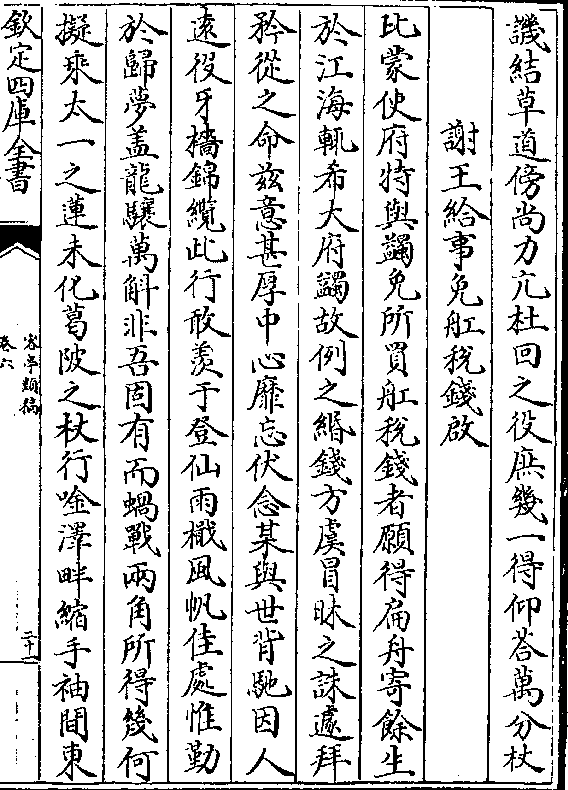 譏結草道傍尚力亢杜回之役庶幾一得仰荅萬分杖
謝王給事免舡稅錢啟
比蒙使府特與蠲免所買舡稅錢者願得扁舟寄餘生
於江海輒希大府蠲故例之緡錢方虞冒昧之誅遽拜
矜從之命兹意甚厚中心靡忘伏念某與世背馳因人
遠役牙檣錦纜此行敢羨于登仙雨檝風帆佳處惟勤
於歸夢盖龍驤萬斛非吾固有而蝸戰兩角所得幾何
擬乘太一之蓮未化葛陂之杖行唫澤畔縮手袖間東
欽定四庫全書
客亭類稿
卷六
二十一